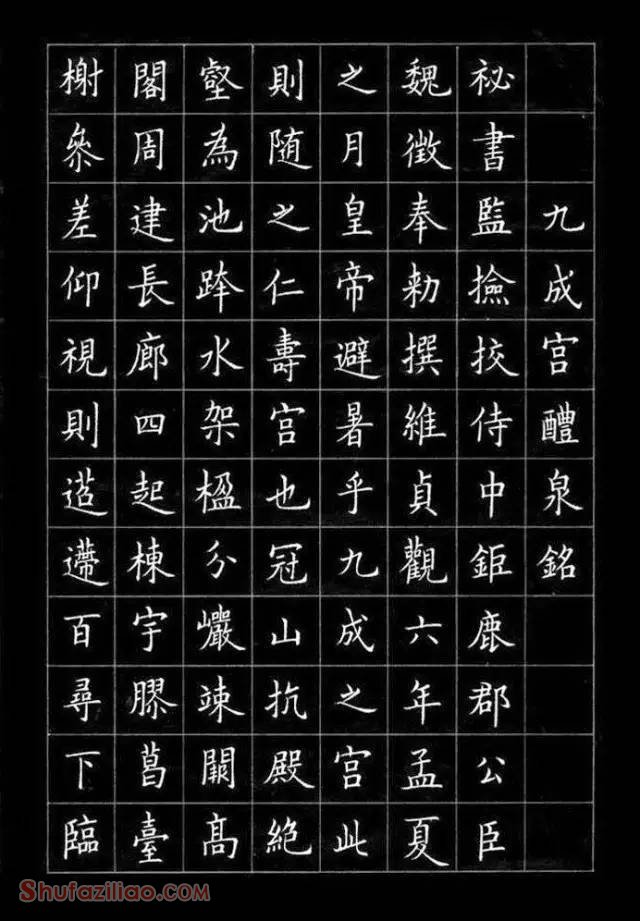 九成宫醴泉銘
祕書監撿挍侍中鉅鹿郡公臣
魏徵奉勑撰維貞觀六年孟夏
之月皇帝避暑乎九成之宫此
則随之仁壽宫也冠山抗殿絶
壑為池跨水架楹分巖竦闕髙
閣周建長廊四起棟宇膠葛臺
榭叅差仰視則迢遰百尋下臨
Shufaziliao.COM